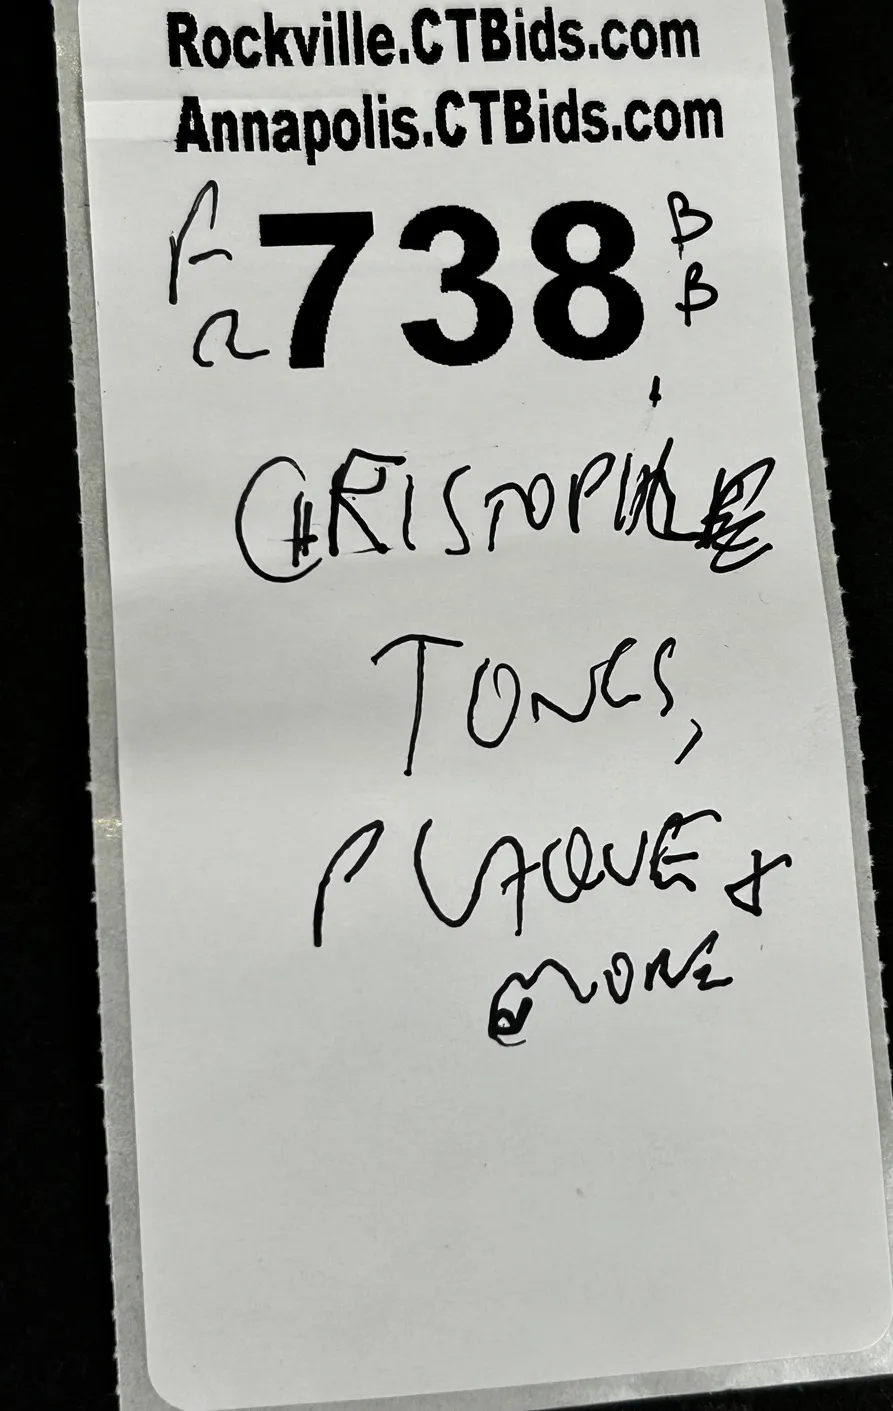 Rockville.CTBids.com
Annapolis.CTBids.com
738
B
B
CHRISTOPHLE
TONGS,
PLAQUE &
MORE